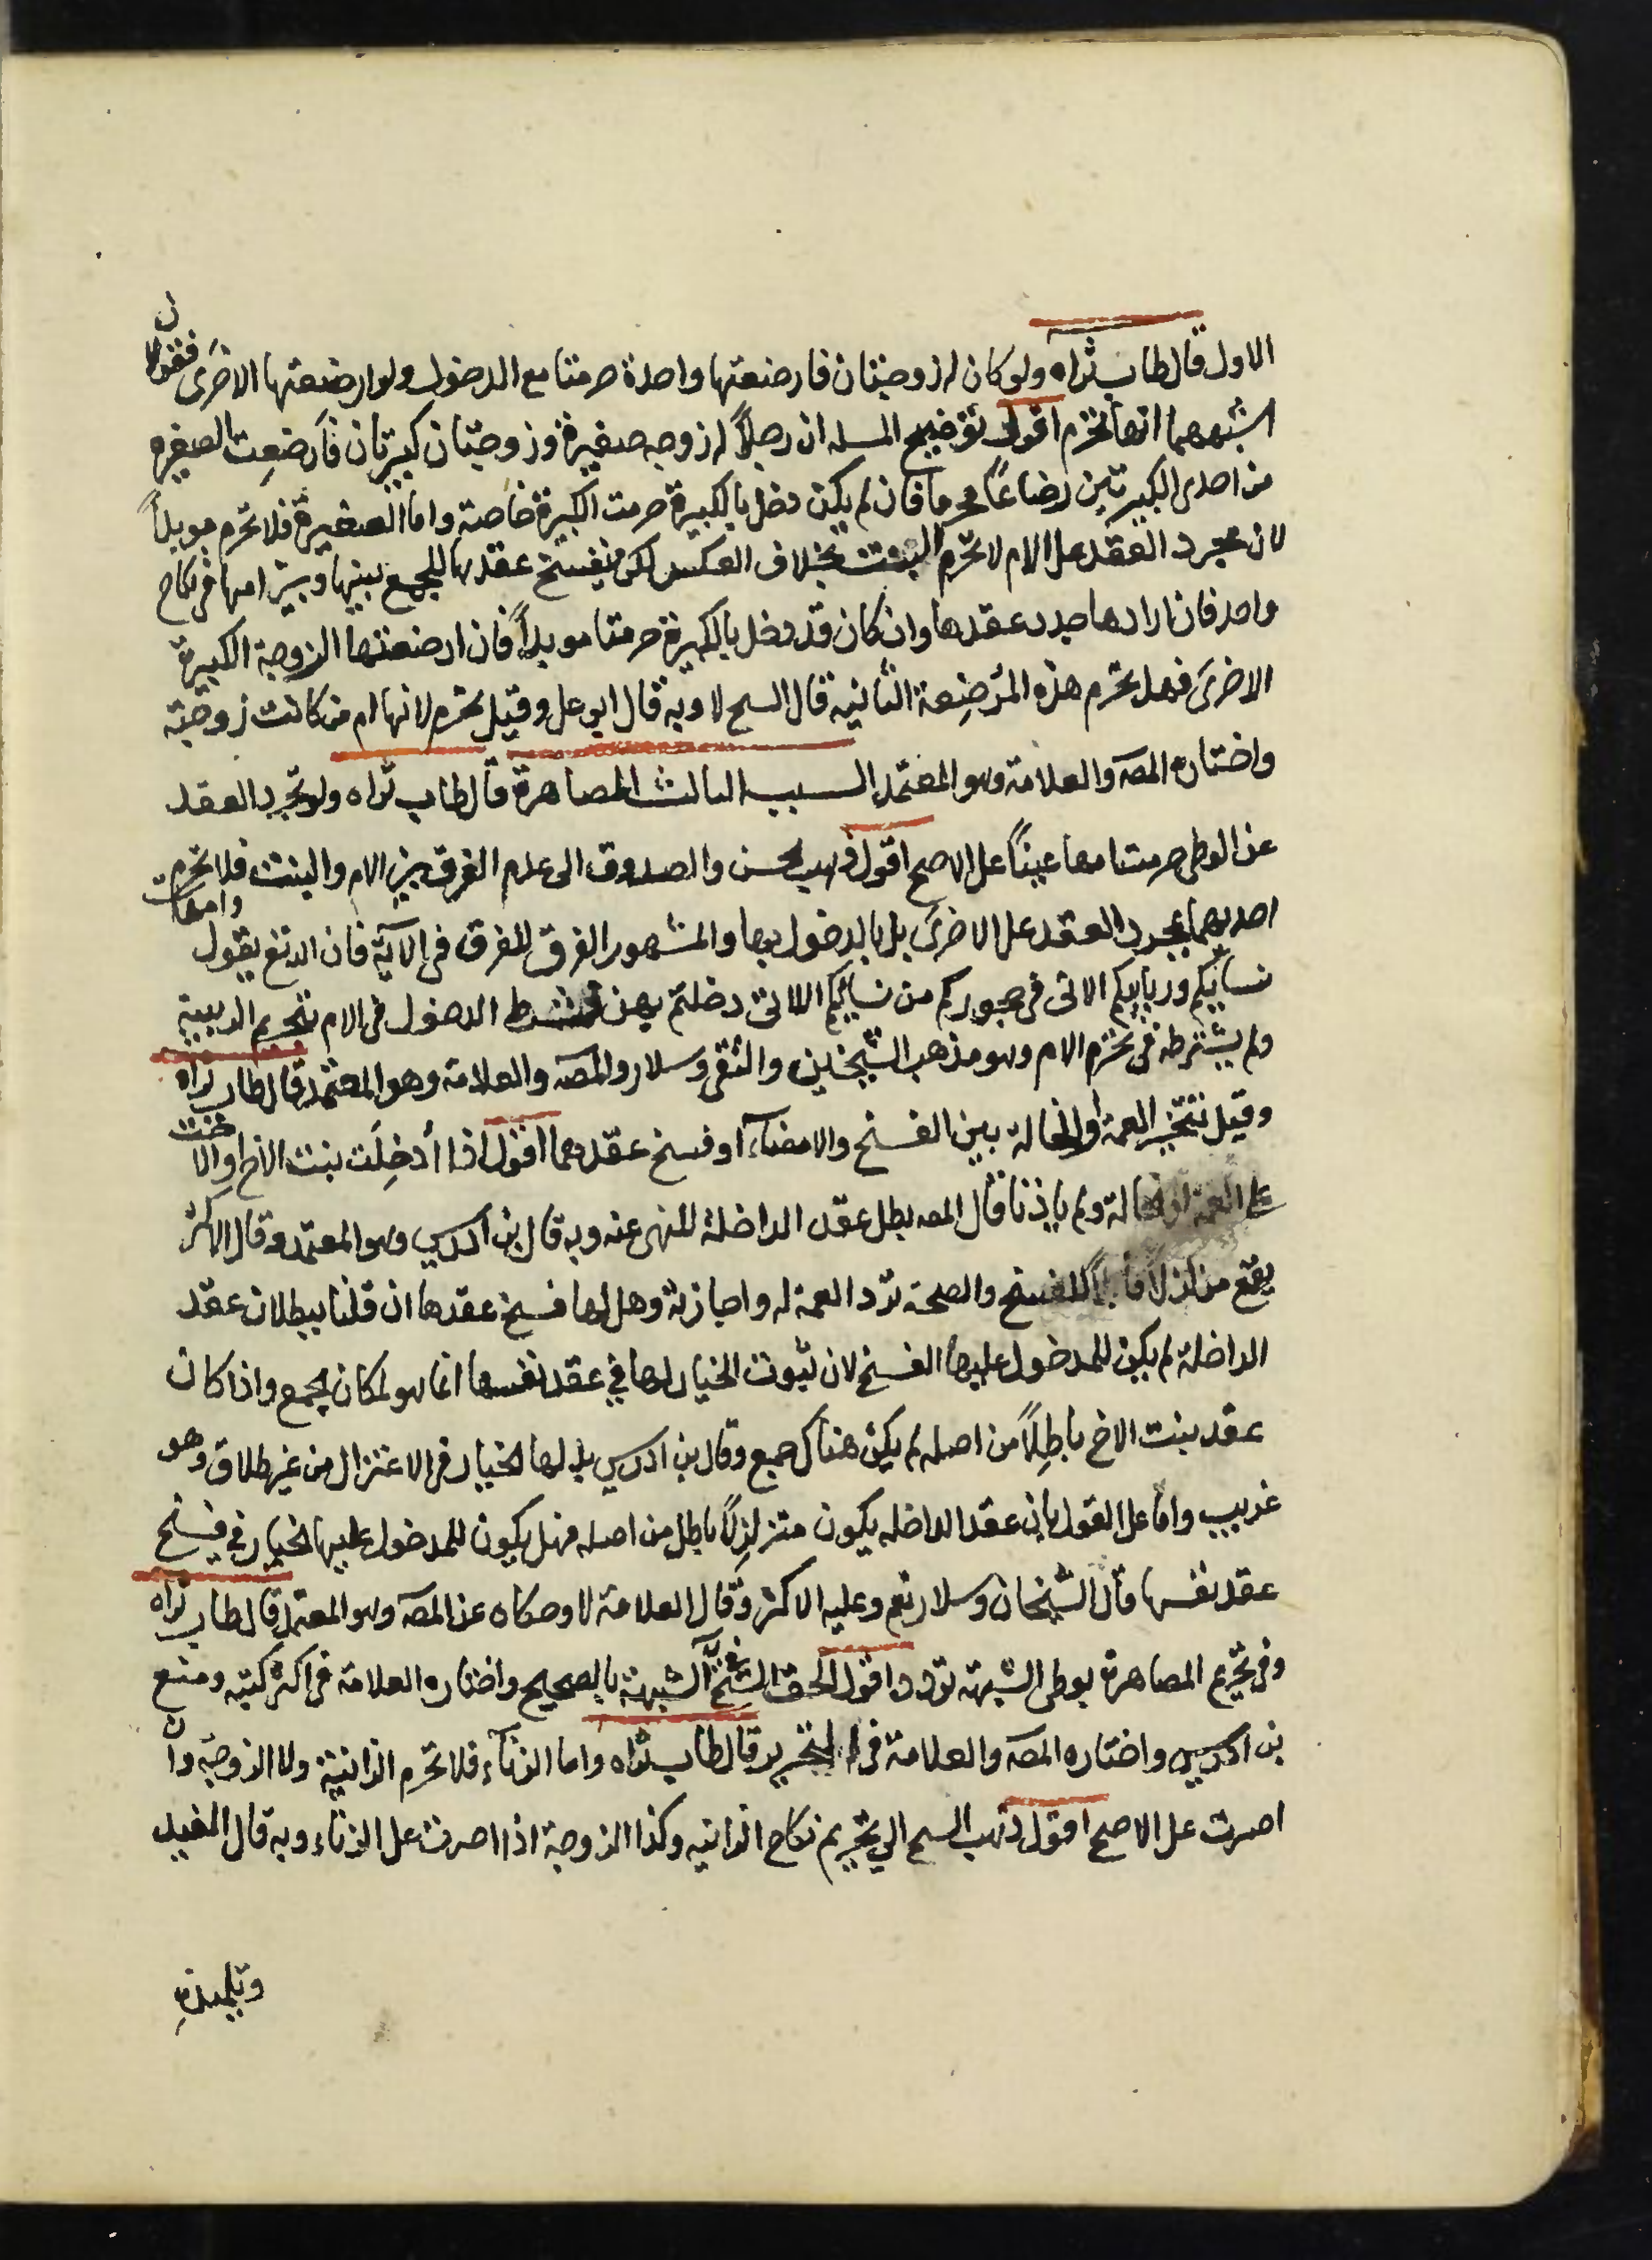 الاول قال طاب ثراه ولو كان له زوجتان فارضعتها واحدة حرمتا مع الدخول ولو ارضعتها الاخرى فقولان
اشبههما انها تحرم اقول توضيح المسله ان رجلاً له زوجه صغيرة وزوجتان كبيرتان فارضعت الصغيره
من احدى الكبيرتين رضاعاً محرماً فان لم يكن دخل بالكبيرة حرمت الكبيرة خاصة واما الصغيرة فلا تحرم موبداً
لان مجرد العقد على الام لا تحرم البنت بخلاف العكس لكن ينفسخ عقدها للجمع بينها وبين امها في نكاح
واحد فان ارادها جدد عقدها وان كان قد دخل بالكبيرة حرمتا موبداً فان ارضعتها الزوجة الكبيرة
الاخرى فهل تحرم هذه المرضعة الثانيه قال الشيخ لا وبه قال ابو على وقيل تحرم لانها ام من كانت زوجته
واختاره المصه والعلامة وهو المعتمد السبب الثالث المصاهرة قال طاب ثراه ولو تجرد العقد
عن الوطى حرمت امها عيناً على الاصح اقول ذهب الحسن والصدوق الى عدم الفرق بين الام والبنت فلا تحرم
احديهما بمجرد العقد على الاخرى بل بالدخول بها والمشهور الفرق للفرق في الآية فان الله تع يقول وامهات
نسائكم وربايبكم الاتى في حجوركم من نسائكم اللاتى دخلتم بهن فشرط الدخول في الام بتحريم الربيبة
ولم يشترطه في تحرم الام وهو مذهب الشيخين والتقى وسلار والمصه والعلامة وهو المعتمد قال طاب ثراه
وقيل تتخير العمة او الخالة بين الفسخ والامضاء او فسخ عقدهما اقول اذا أدخِلَت بنت الاخ او الاخت
على العمة او الخالة ولم ياذنا قال المصه بطل عقد الداخلة للنهى عنه وبه قال بن ادريس وهو المعتمد وقال الاكثر
يقع متزلزلاً قابلاً للفسخ والصحة تردد العمة له واجازته وهل لها فسخ عقدها ان قلنا ببطلان عقد
الداخلة لم يكن للمدخول عليها الفسخ لان ثبوت الخيار لها في عقد نفسها انما هو لمكان الجمع واذا كان
عقد بنت الاخ باطِلاً من اصله لم يكن هناك جمع وقال بن ادريس بل لها الخيار في الاعتزال من غير طلاق وهو
غريب واما على القول بان عقد الداخله يكون متزلزِلاً باطل من اصله فهل يكون للمدخول عليها الخيار في فسخ
عقد نفسها قال الشيخان وسلار نعم وعليه الاكثر وقال العلامة لا وحكاه عن المصه وهو المعتمد قال طاب ثراه
وفى تحريم المصاهرة بوطى الشبهة تردد اقول الحق الشيخ الشبهة بالصحيح واختاره العلامة في اكثر كتبه ومنع
بن ادريس واختاره المصه والعلامة في التحرير قال طاب ثراه واما الزناء فلا تحرم الزانية ولا الزوجة وان
اصرت على الاصح اقول ذهب الشيخ الى تحريم نكاح الزانيه وكذا الزوجة اذا اصرت على الزناء وبه قال المفيد
وتلميذه